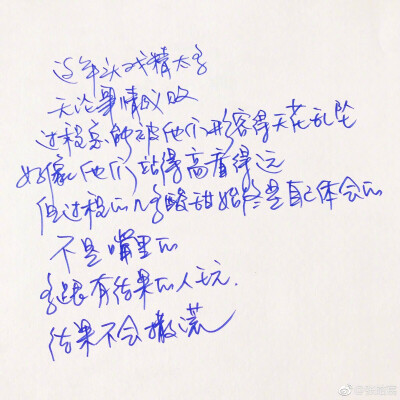 这年头戏精太多
无论事情成败
过程总能被他们形容得天花乱坠
好像他们站得高看得远
但过程的几多酸甜始终是自己体会的
不是嘴里的
多跟有结果的人玩.
结果不会撒谎